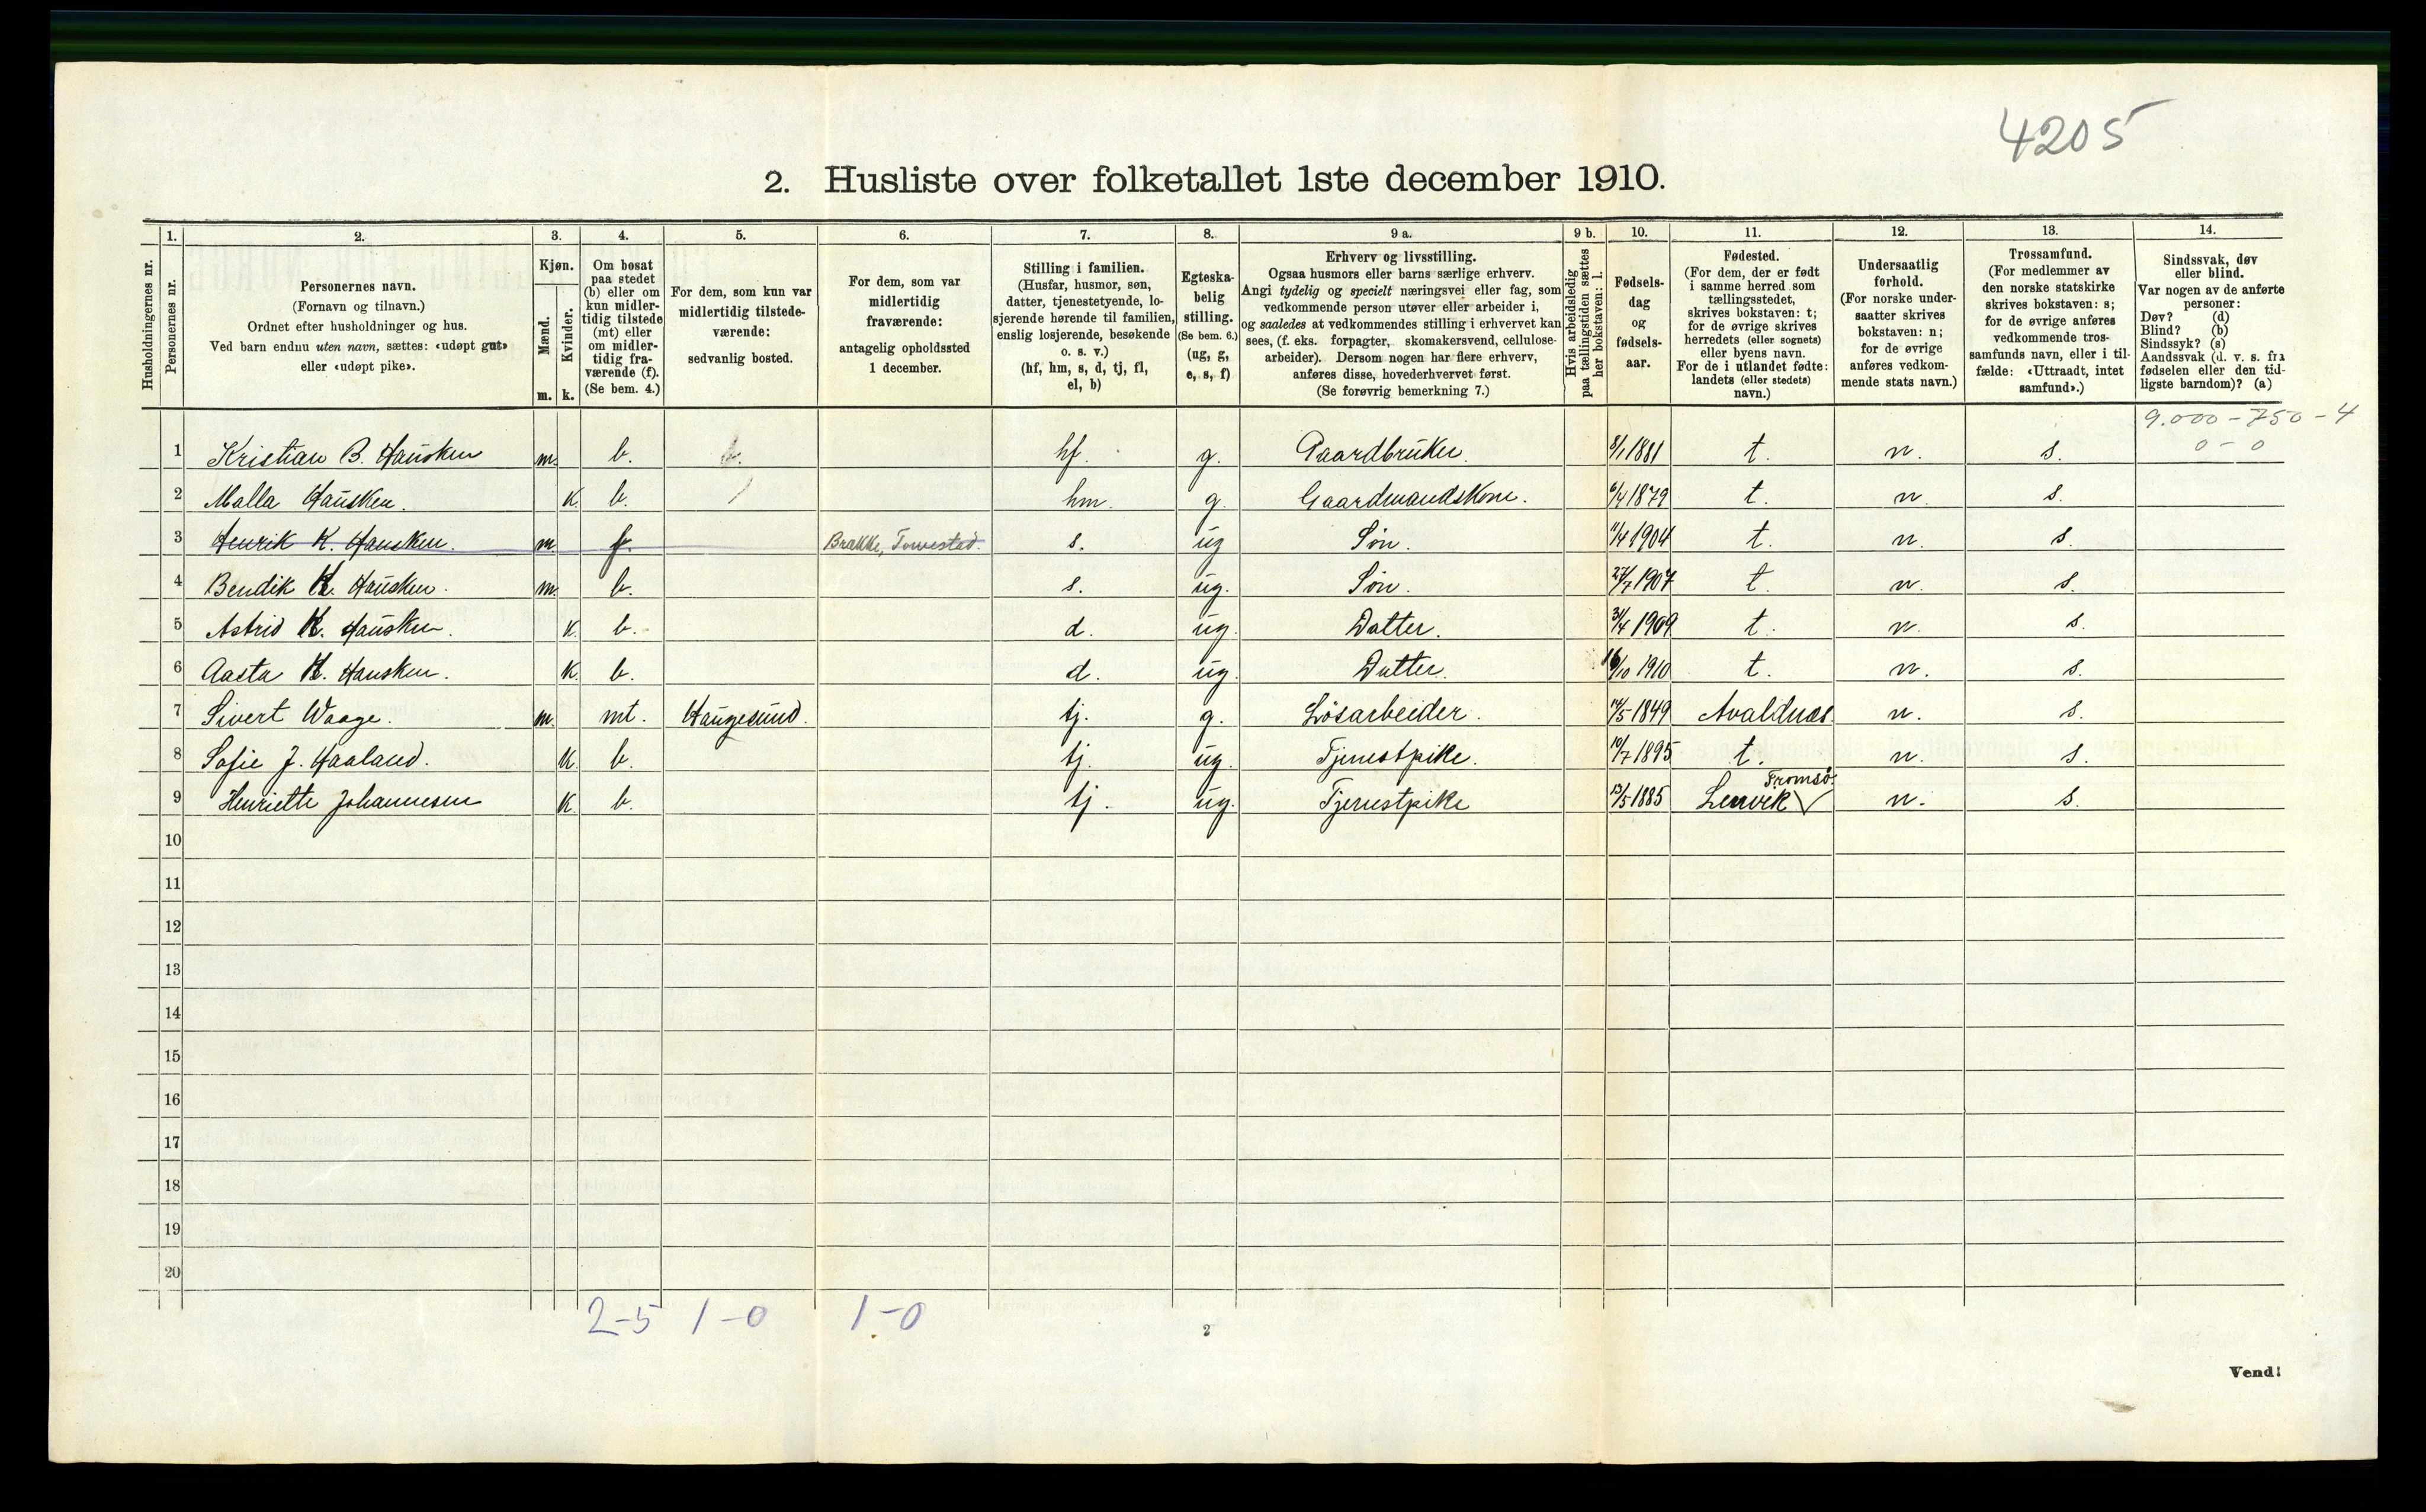 4205
2. Husliste over folketallet 1ste december 1910.
Husholdningernes nr.
1.
Personernes nr.
2.
Personernes navn.
(Fornavn og tilnavn.)
Ordnet efter husholdninger og hus.
Ved barn endnu uten navn, sættes: «udøpt gut»
eller «udøpt pike».
3.
Kjøn.
Mænd.
m.
Kvinder.
k.
4.
Om bosat
paa stedet
(b) eller om
kun midler-
tidig tilstede
(mt) eller
om midler-
tidig fra-
værende (f).
(Se bem. 4.)
5.
For dem, som kun var
midlertidig tilstede-
værende:
sedvanlig bosted.
6.
For dem, som var
midlertidig
fraværende:
antagelig opholdssted
1 december.
7.
Stilling i familien.
(Husfar, husmor, søn,
datter, tjenestetyende, lo-
sjerende hørende til familien,
enslig losjerende, besøkende
o. s. v.)
(hf, hm, s, d, tj, fl,
el, b)
8.
Egteska-
belig
stilling.
(Se bem. 6.)
(ug, g,
e, s, f)
9 a.
Erhverv og livsstilling.
Ogsaa husmors eller barns særlige erhverv.
Angi tydelig og specielt næringsvei eller fag, som
vedkommende person utøver eller arbeider i,
og saaledes at vedkommendes stilling i erhvervet kan
sees, (f. eks. forpagter, skomakersvend, cellulose-
arbeider). Dersom nogen har flere erhverv,
anføres disse, hovederhvervet først.
(Se forøvrig bemerkning 7.)
9 b.
Hvis arbeidsledig
paa tællingstiden sættes
her bokstaven: l.
10.
Fødsels-
dag
og
fødsels-
aar.
11.
Fødested.
(For dem, der er født
i samme herred som
tællingsstedet,
skrives bokstaven: t;
for de øvrige skrives
herredets (eller sognets)
eller byens navn.
For de i utlandet fødte:
landets (eller stedets)
navn.)
12.
Undersaatlig
forhold.
(For norske under-
saatter skrives
bokstaven: n;
for de øvrige
anføres vedkom-
mende stats navn.)
13.
Trossamfund.
(For medlemmer av
den norske statskirke
skrives bokstaven: s;
for de øvrige anføres
vedkommende tros-
samfunds navn, eller i til-
fælde: «Uttraadt, intet
samfund».)
14.
Sindssvak, døv
eller blind.
Var nogen av de anførte
personer:
Døv? (d)
Blind? (b)
Sindssyk? (s)
Aandssvak (d. v. s. fra
fødselen eller den tid-
ligste barndom)? (a)
9.000-750-4
0-0
1 Kristian B. Hausken m. b. hf. g. Gaardbruker. 8/1 1881 t. n. s.
2 Malla Hausken. K. b. hm. g. Gaardmandskone. 6/4 1879 t. n. s.
3 Henrik K. Hausken. m. f. Brakke, Torvestad. s. ug Søn. 11/4 1904 t. n. s.
4 Bendik K. Hausken. m. b. s. ug. Søn. 27/7 1907 t. n. s.
5 Astrid K. Hausken. K. b. d. ug. Datter. 1909 t. n. s.
6 Aasta K. Hausken. K. b. d. ug. Datter. 16/10 1910 t. n. s.
7 Sivert Waage. m. mt. Haugesund. tj. g. Løsarbeider. 14/5 1849 Avaldnes n. s.
8 Sofie J. Haaland. K. b. tj. ug. Tjenestpike. 10/7 1895 t. n. s.
9 Henriette Johannesen K. b. tj. ug. Tjenestpike 13/5 1885 Lenvik Tromsø. n. s.
10
11
12
13
14
15
16
17
18
19
20
2-5 1-0 1-0
2
Vend!